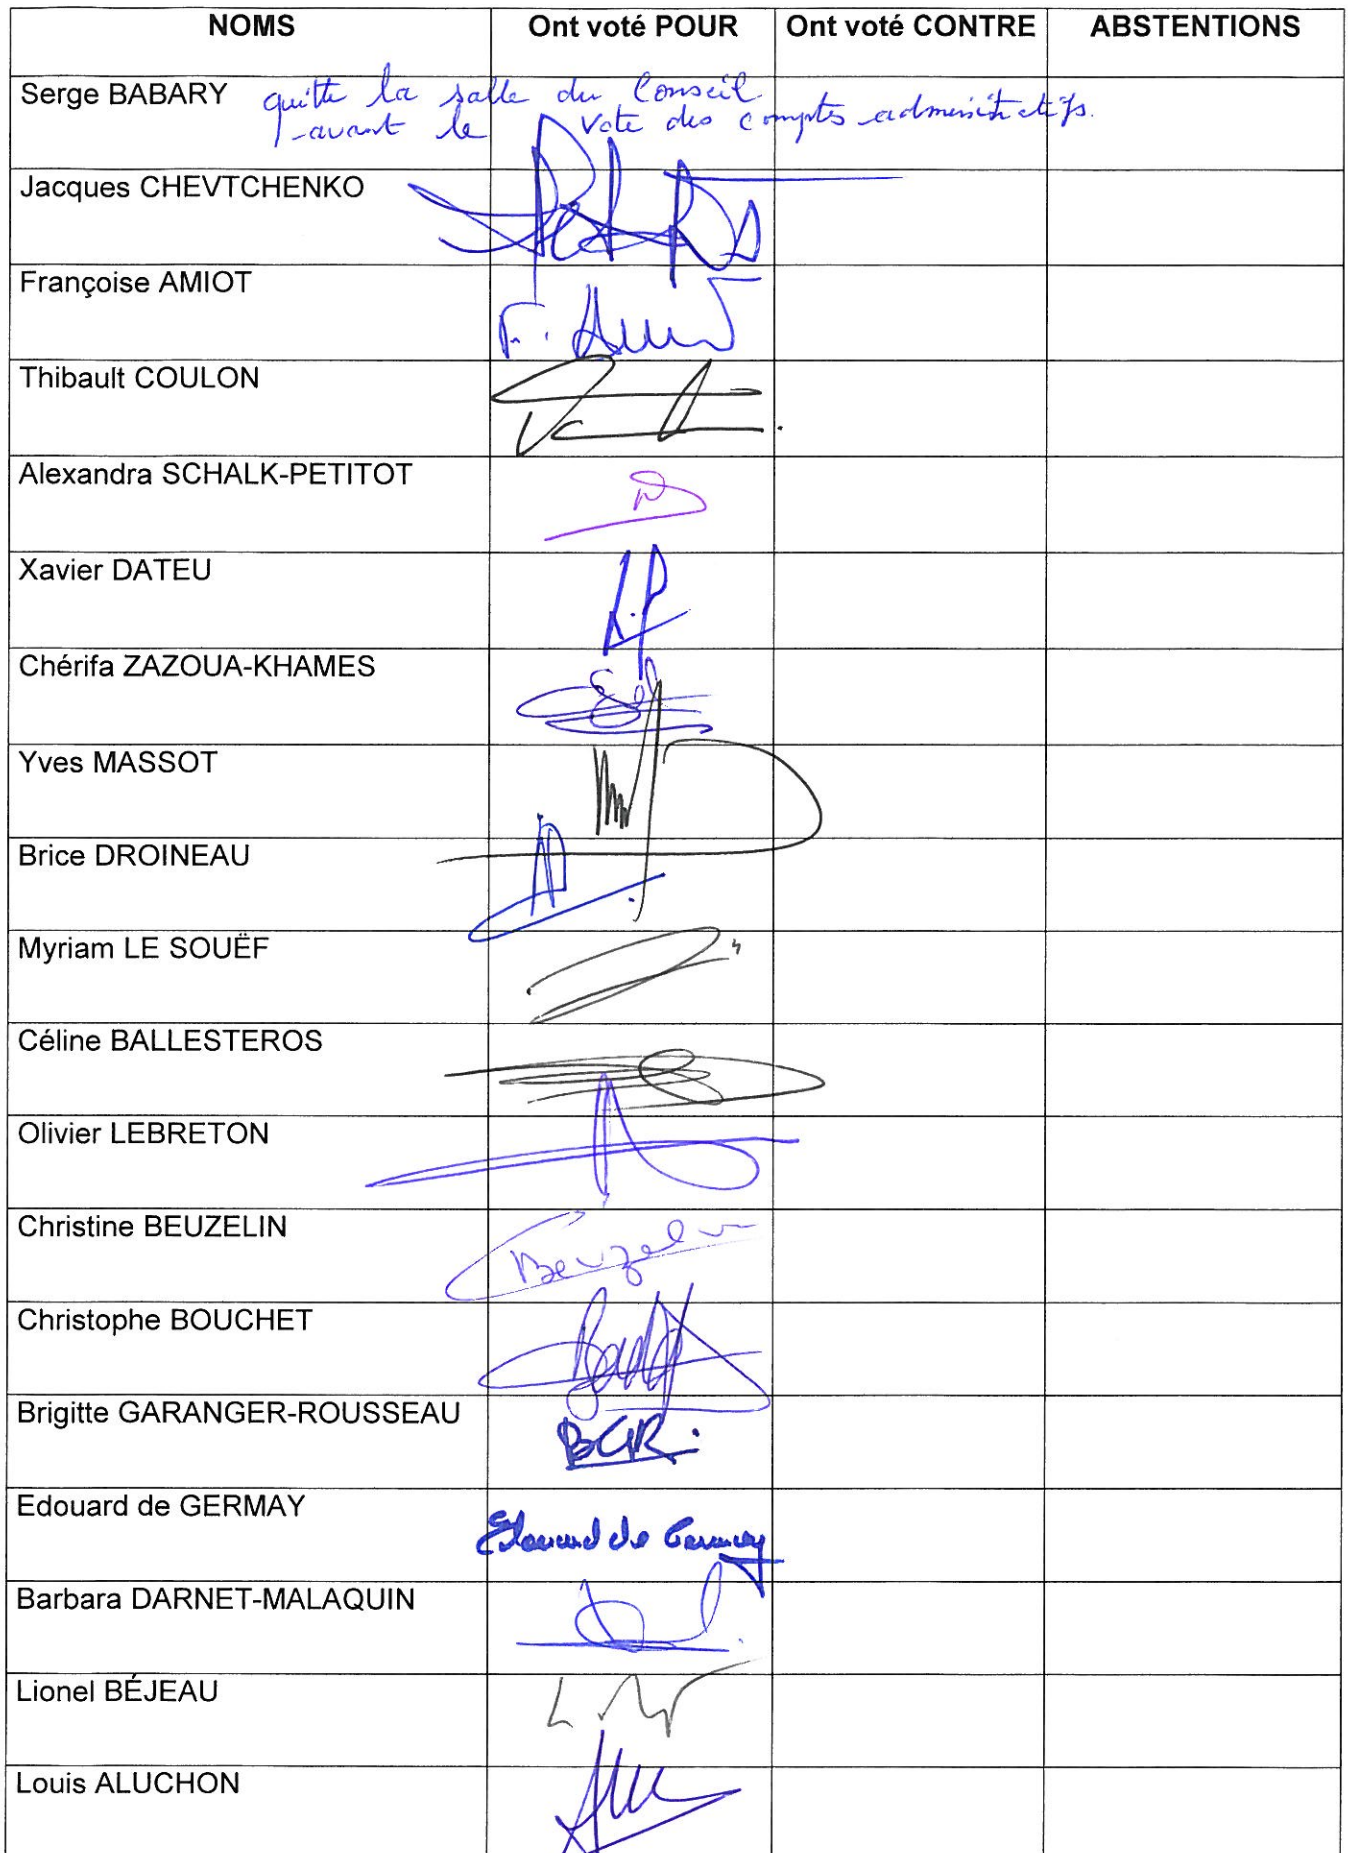 NOMS Ont voté POUR Ont voté CONTRE ABSTENTIONS
Serge BABARY quitte la salle du Conseil
avant le vote des comptes administratifs.
Jacques CHEVTCHENKO
Françoise AMIOT
F. Amiot
Thibault COULON
Alexandra SCHALK-PETITOT
Xavier DATEU
Chérifa ZAZOUA-KHAMES
Yves MASSOT
Brice DROINEAU
Myriam LE SOUËF
Céline BALLESTEROS
Olivier LEBRETON
Christine BEUZELIN
Beuzelin
Christophe BOUCHET
Brigitte GARANGER-ROUSSEAU
BGR.
Edouard de GERMAY
Edouard de Germay
Barbara DARNET-MALAQUIN
Lionel BÉJEAU
Louis ALUCHON